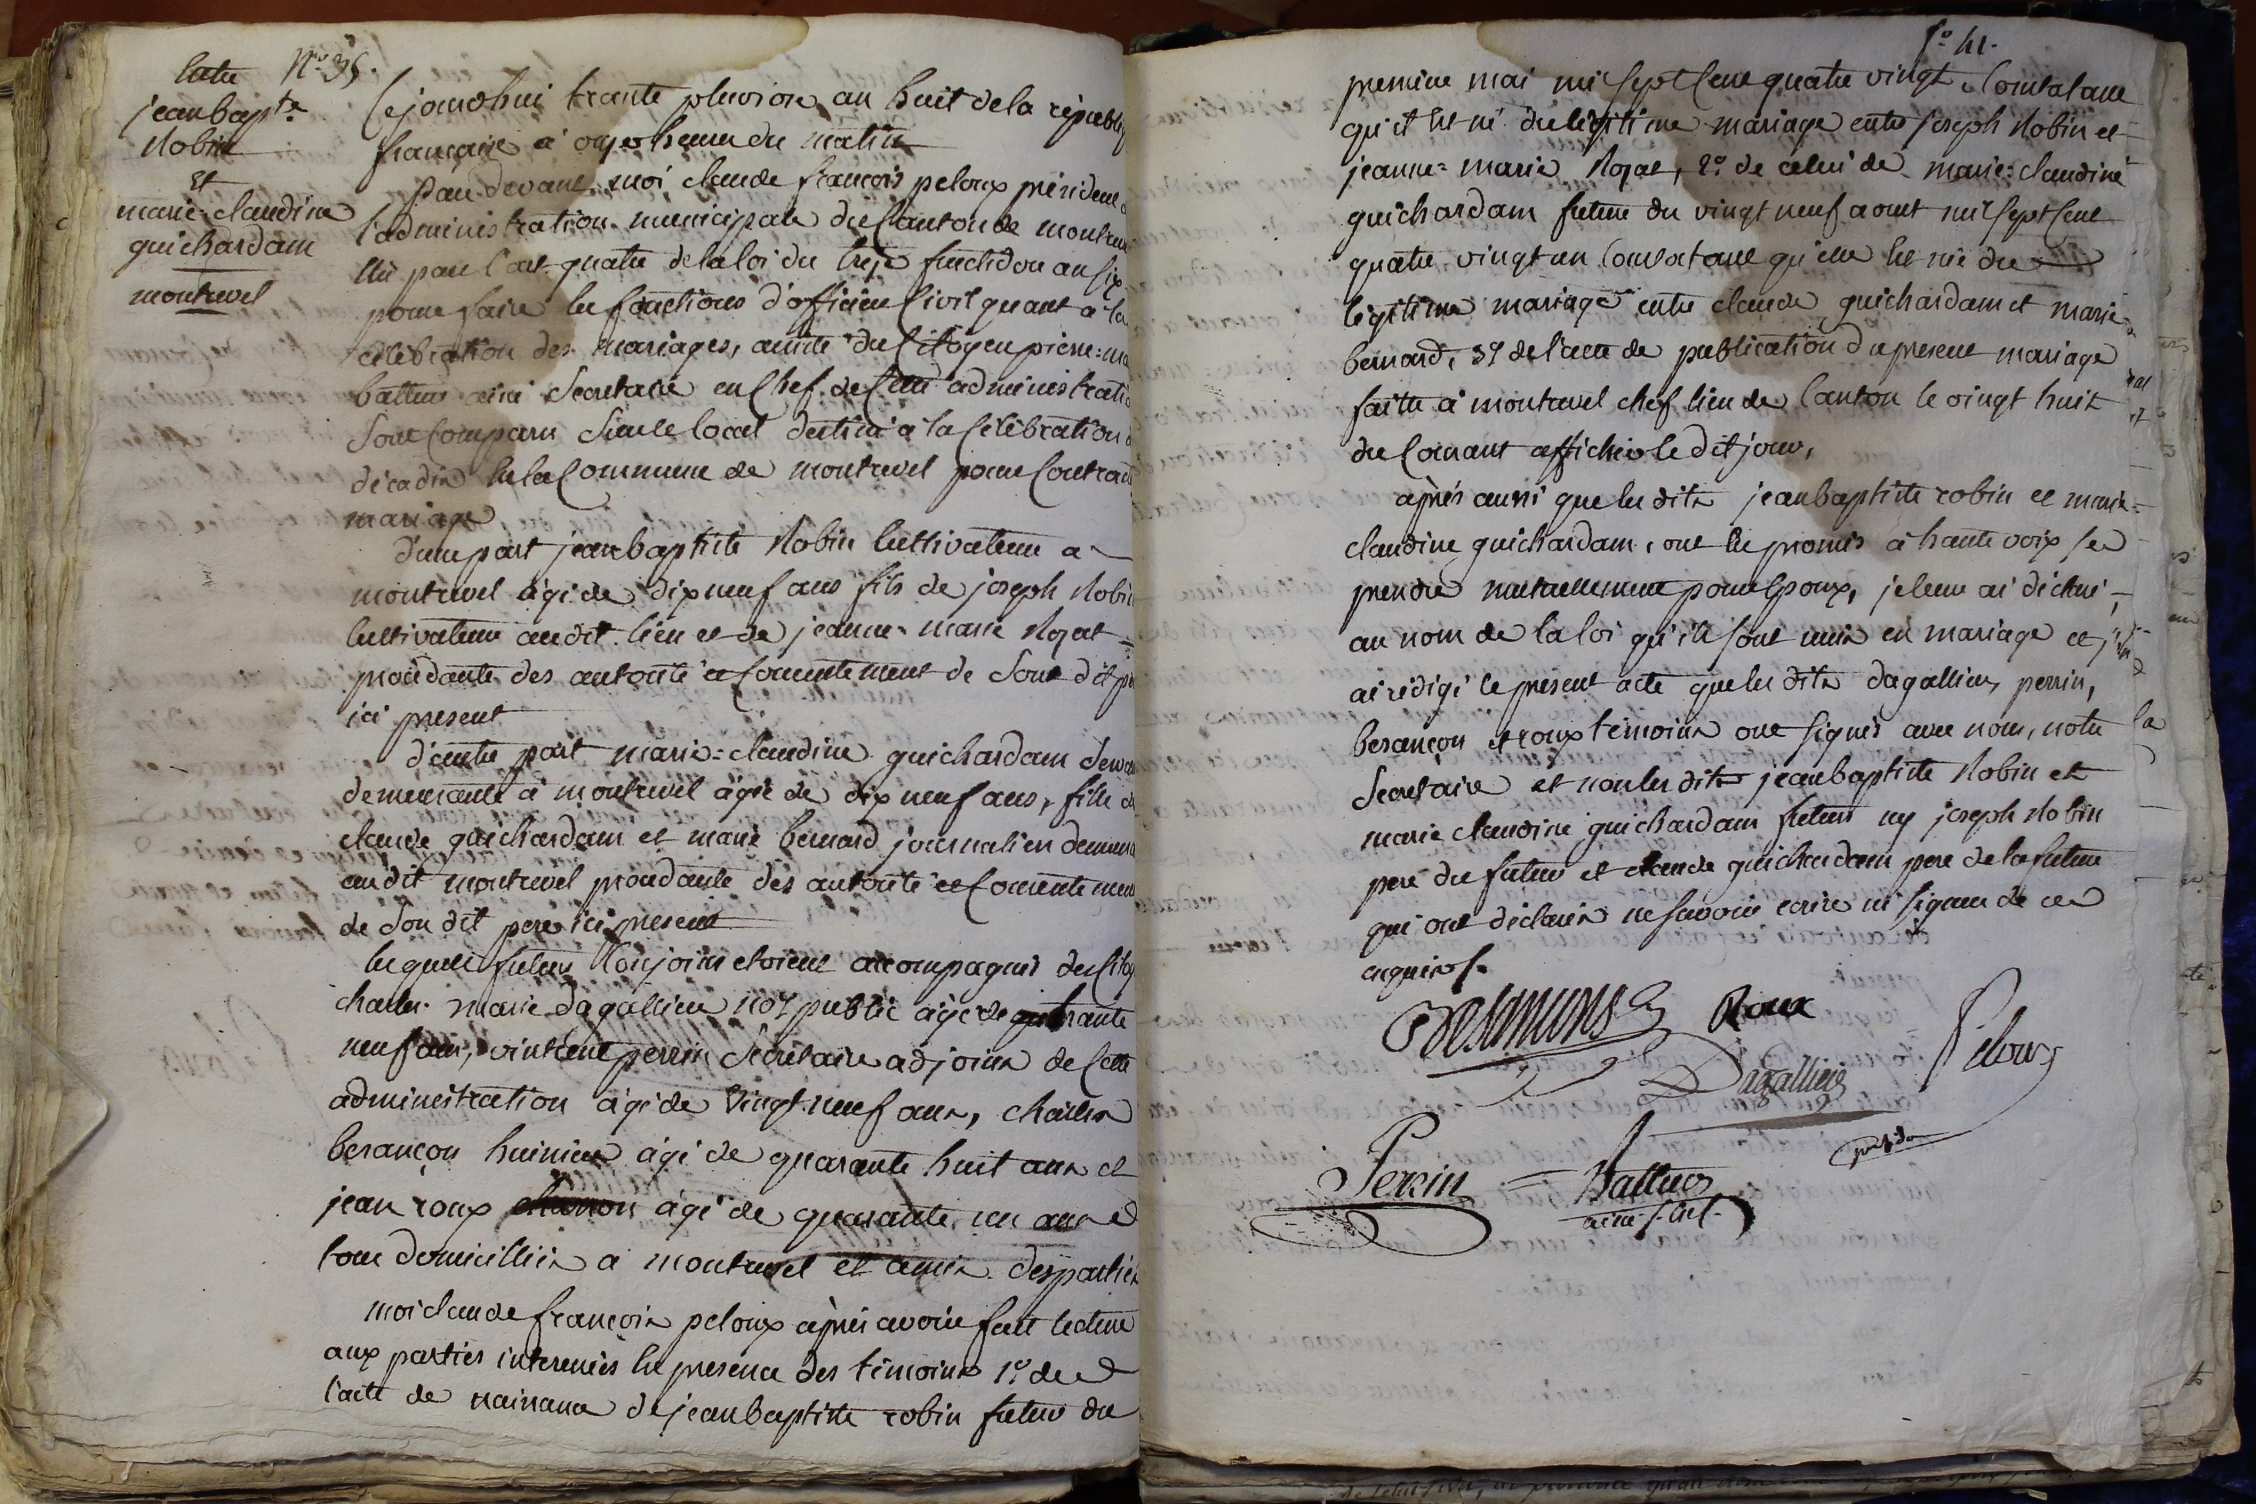 Entre N° 35.
jean bapte.
Robin
et
marie claudine
guichardam
montrevel
Cejourdhui trante pluviose an huit de la republiq
francaise a onze heures du matin
Pardevant moi claude francois peloux president
l'administration municipale du Canton de montrev
Elu par l'art. quatre de la loi du treize fructidor an six
pour faire les fonctions d'officier Civil quant a la
célébration des mariages, assisté du Citoyen pierre=ma
battur ainé Secretaire en Chef de Cette administratio
Sont Comparu Sur le local destiné a la Célébration d
décadis En la Commune de montrevel pour Contract
mariage
d'une part jean baptiste Robin Cultivateur a
montrevel agé de dix neuf ans fils de joseph Robin
Cultivateur au dit lieu et de jeanne= marie Rozat
procedante des autorité et Consentement de Sont dit pe
ici present
d'autre part marie=claudine guichardam
demeurante a montrevel agée de dix neuf ans, fille de
claude guichardam et marie bernard journalier demeura
audit montrevel procedante des autorité et Consentement
de Son dit pere ici present
lesquels futurs Conjoins etoient accompagnés des Citoy
charles marie dagallier not public agé de trante
neuf ans, vintcent perrin Secretaire adjoins de Cette
administration agé de Vingt neuf ans, charles
besançon huissier agé de quarante huit ans et
jean roux agé de quarante un ans
tous domicilliés a montrevel et amis des parties
moi claude francois peloux après avoir fait lecture
aux parties interessées En presence des témoins 1° de
l'acte de naissance de jean baptiste robin futur du
f° 41.
premier mai mil Sept Cent quatre vingt Constatant
qu'il Est né du légitime mariage entre joseph Robin et
jeanne= marie Rozat, 2° de celui de marie= claudine
guichardam future du vingt neuf aout mil Sept Cent
quatre vingt un Constatant qu'elle Est née du
légitime mariage entre claude guichardam et marie
bernard, 3° de l'acte de publication du present mariage
faitte a montrevel chef lieu de Canton le vingt huit
du Courant affichée le dit jour,
après aussi que les dits jean baptiste robin et marie=
claudine guichardam, ont Eu promis a haute voix se
prendre mutuellement pour Epoux, je leur ai déclaré
au nom de la loi qu'ils sont unis en mariage et j'
ai rédigé le présent acte que les dits dagallier, perrin,
besançon et roux témoins ont signés avec nous, notre
Secretaire et non les dits jean baptiste Robin et
marie claudine guichardam futurs ny joseph Robin
pere du futur et claude guichardam pere de la future
qui ont déclarés ne savoir ecrire ni signer de ce
enquis /.
Besançons Roux
Dagallier
Peloux
presidt
Perrin
Battur
ainé S. Chef.